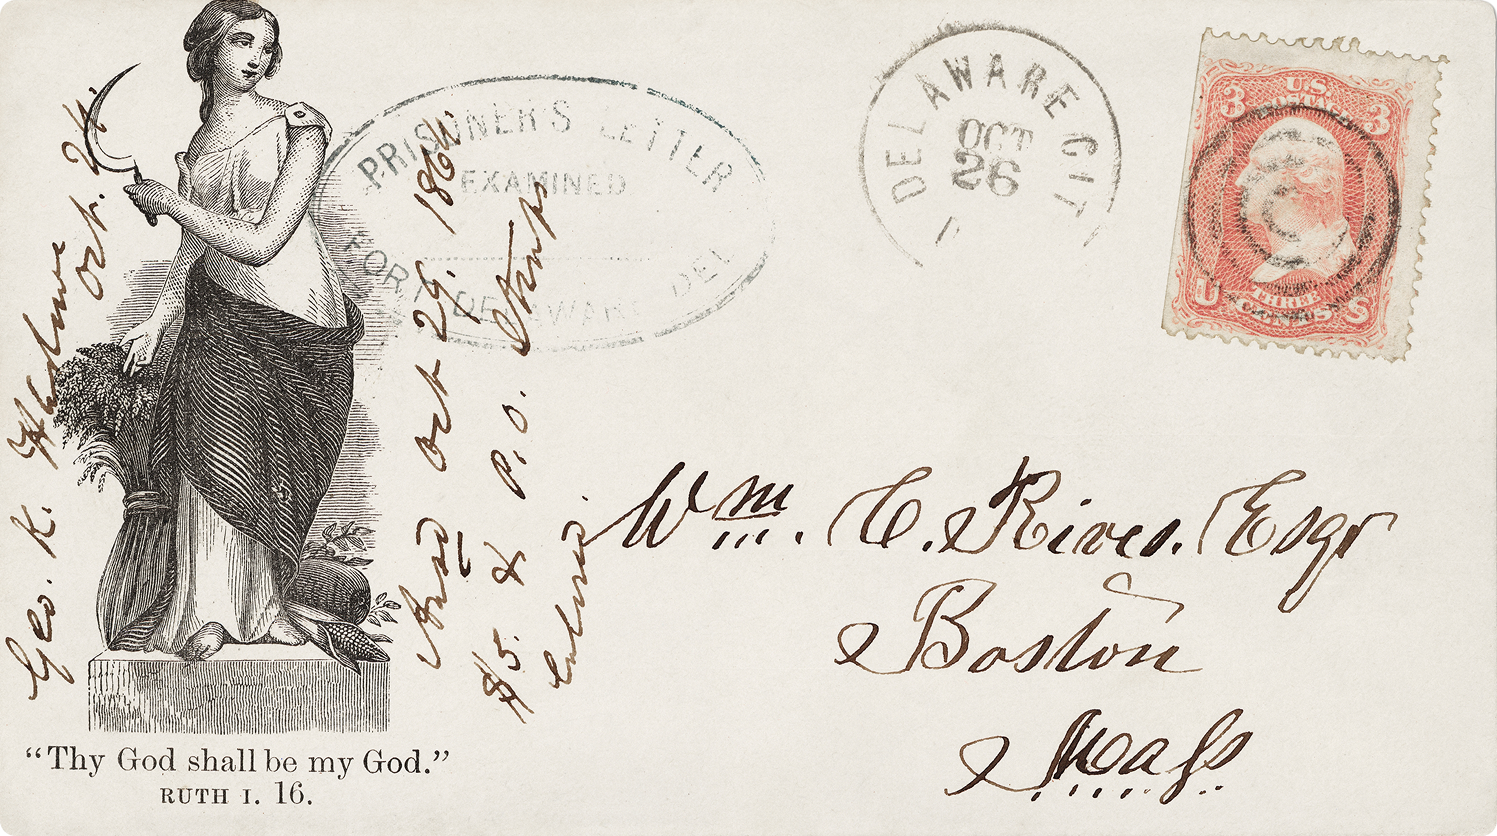 PRISONER'S LETTER
EXAMINED
FORT DELAWARE DEL
DELAWARE CIT
OCT
26
3 U.S. 3
THREE
U CENTS S
Geo. K.
Oct. 24.
Ansd Oct 29. 1864.
$5. & P.O. Stamps
Wm. C. Rives. Esqr
Boston
Mass
“Thy God shall be my God.”
RUTH I. 16.